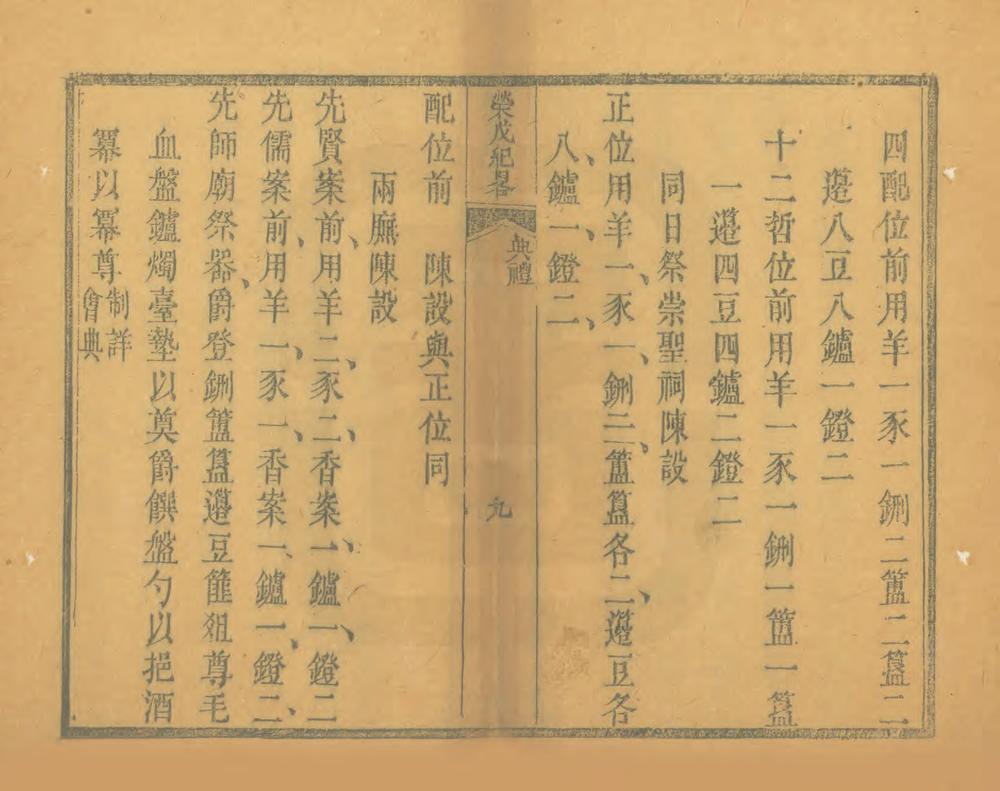 四配位前用羊一豕一鉶二簠二簋二
籩八豆八鑪一鐙二
十二哲位前用羊一豕一鉶一簠一簋
一籩四豆四鑪二鐙二
同日祭崇聖祠陳設
正位用羊一、豕一、鉶三、簠簋各二、籩豆各
八、鑪一、鐙二、
榮戌紀畧
典禮
九
配位前　陳設與正位同
兩廡陳設
先賢案前、用羊二、豕二、香案一、鑪一、鐙二
先儒案前、用羊一、豕一、香案一、鑪一、鐙二、
先師廟祭器、爵登鉶簠簋籩豆篚俎尊毛
血盤鑪燭臺墊以奠爵饌盤勺以挹酒
冪以冪尊制詳
會典